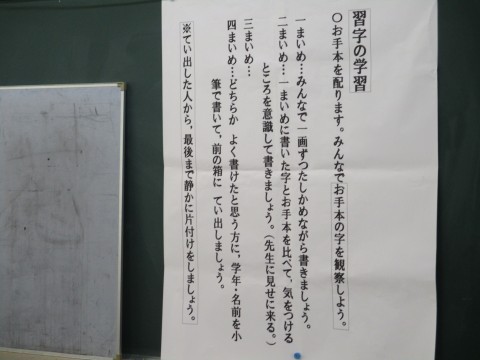 習字の学習
○お手本を配ります。みんなでお手本の字を観察しよう。
一まいめ…みんなで一画ずつたしかめながら書きましょう。
二まいめ…一まいめに書いた字とお手本を比べて、気をつける
ところを意識して書きましょう。(先生に見せに来る。)
三まいめ…
四まいめ…どちらか よく書けたと思う方に、学年・名前を小
筆で書いて、前の箱に てい出しましょう。
※てい出した人から、最後まで静かに片付けをしましょう。